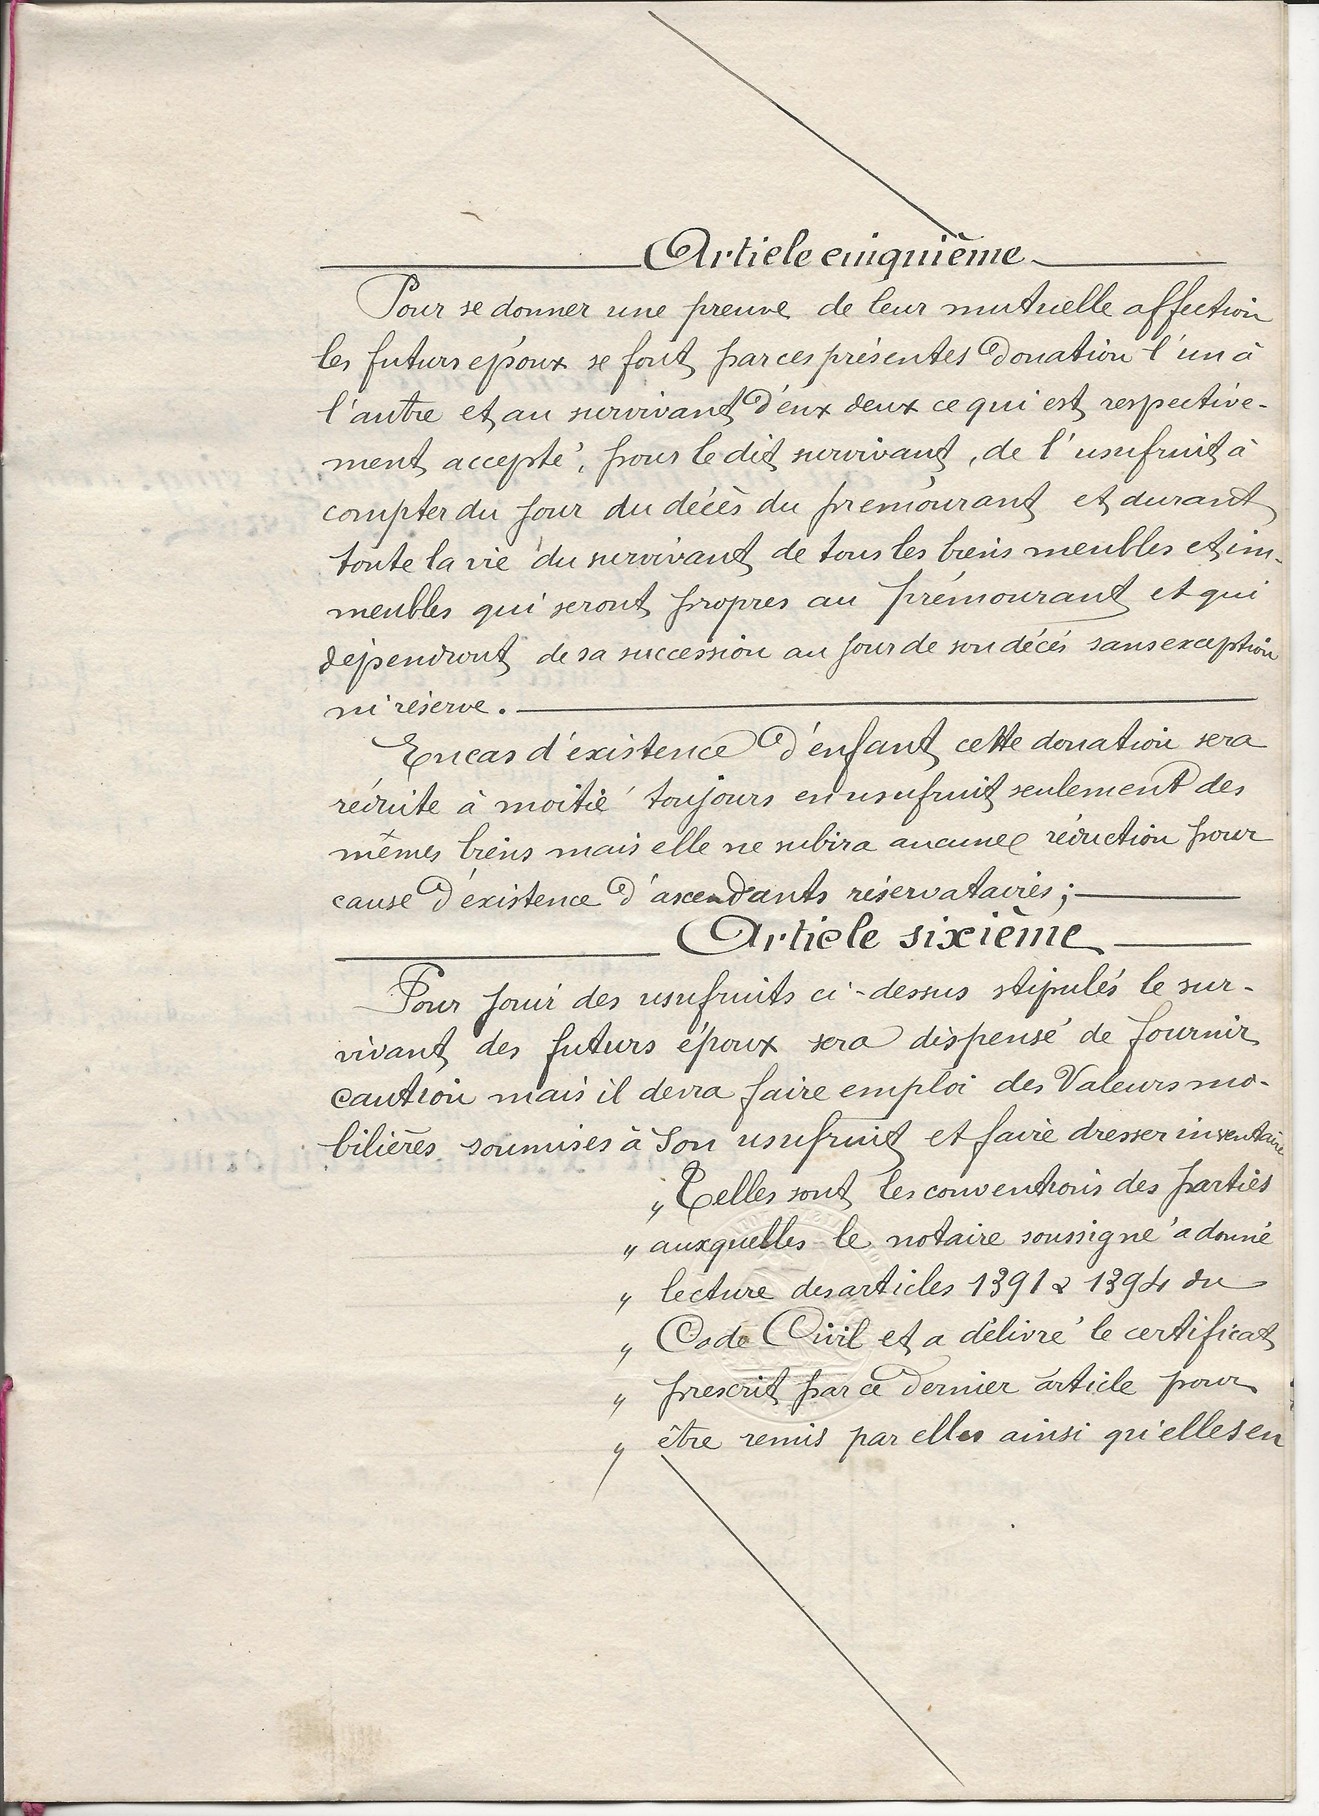 Article cinquième
Pour se donner une preuve de leur mutuelle affection
les futurs époux se font, par ces présentes donation l'un à
l'autre et au survivant d'eux deux ce qui est respective-
ment accepté, pour le dit survivant, de l'usufruit à
compter du jour du décès du prémourant et durant
toute la vie du survivant de tous les biens meubles et im-
meubles qui seront propres au prémourant et qui
dépendront de sa succession au jour de son décés sans exception
ni réserve.
En cas d'existence d'enfant cette donation sera
réduite à moitié toujours en usufruit seulement des
mêmes biens mais elle ne subira aucune réduction pour
cause d'éxistence d'ascendants réservataires;
Article sixième
Pour jouir des usufruits ci-dessus stipulés le sur-
vivant des futurs époux sera dispensé de fournir
caution mais il devra faire emploi des Valeurs mo-
bilières soumises à son usufruit et faire dresser inventaire
„ Telles sont les conventions des parties
„ auxquelles le notaire soussigné a donné
„ lecture des articles 1391 & 1394 du
„ Code Civil et a délivré le certificat
„ prescrit par ce dernier article pour
„ être remis par elles ainsi qu'elles en